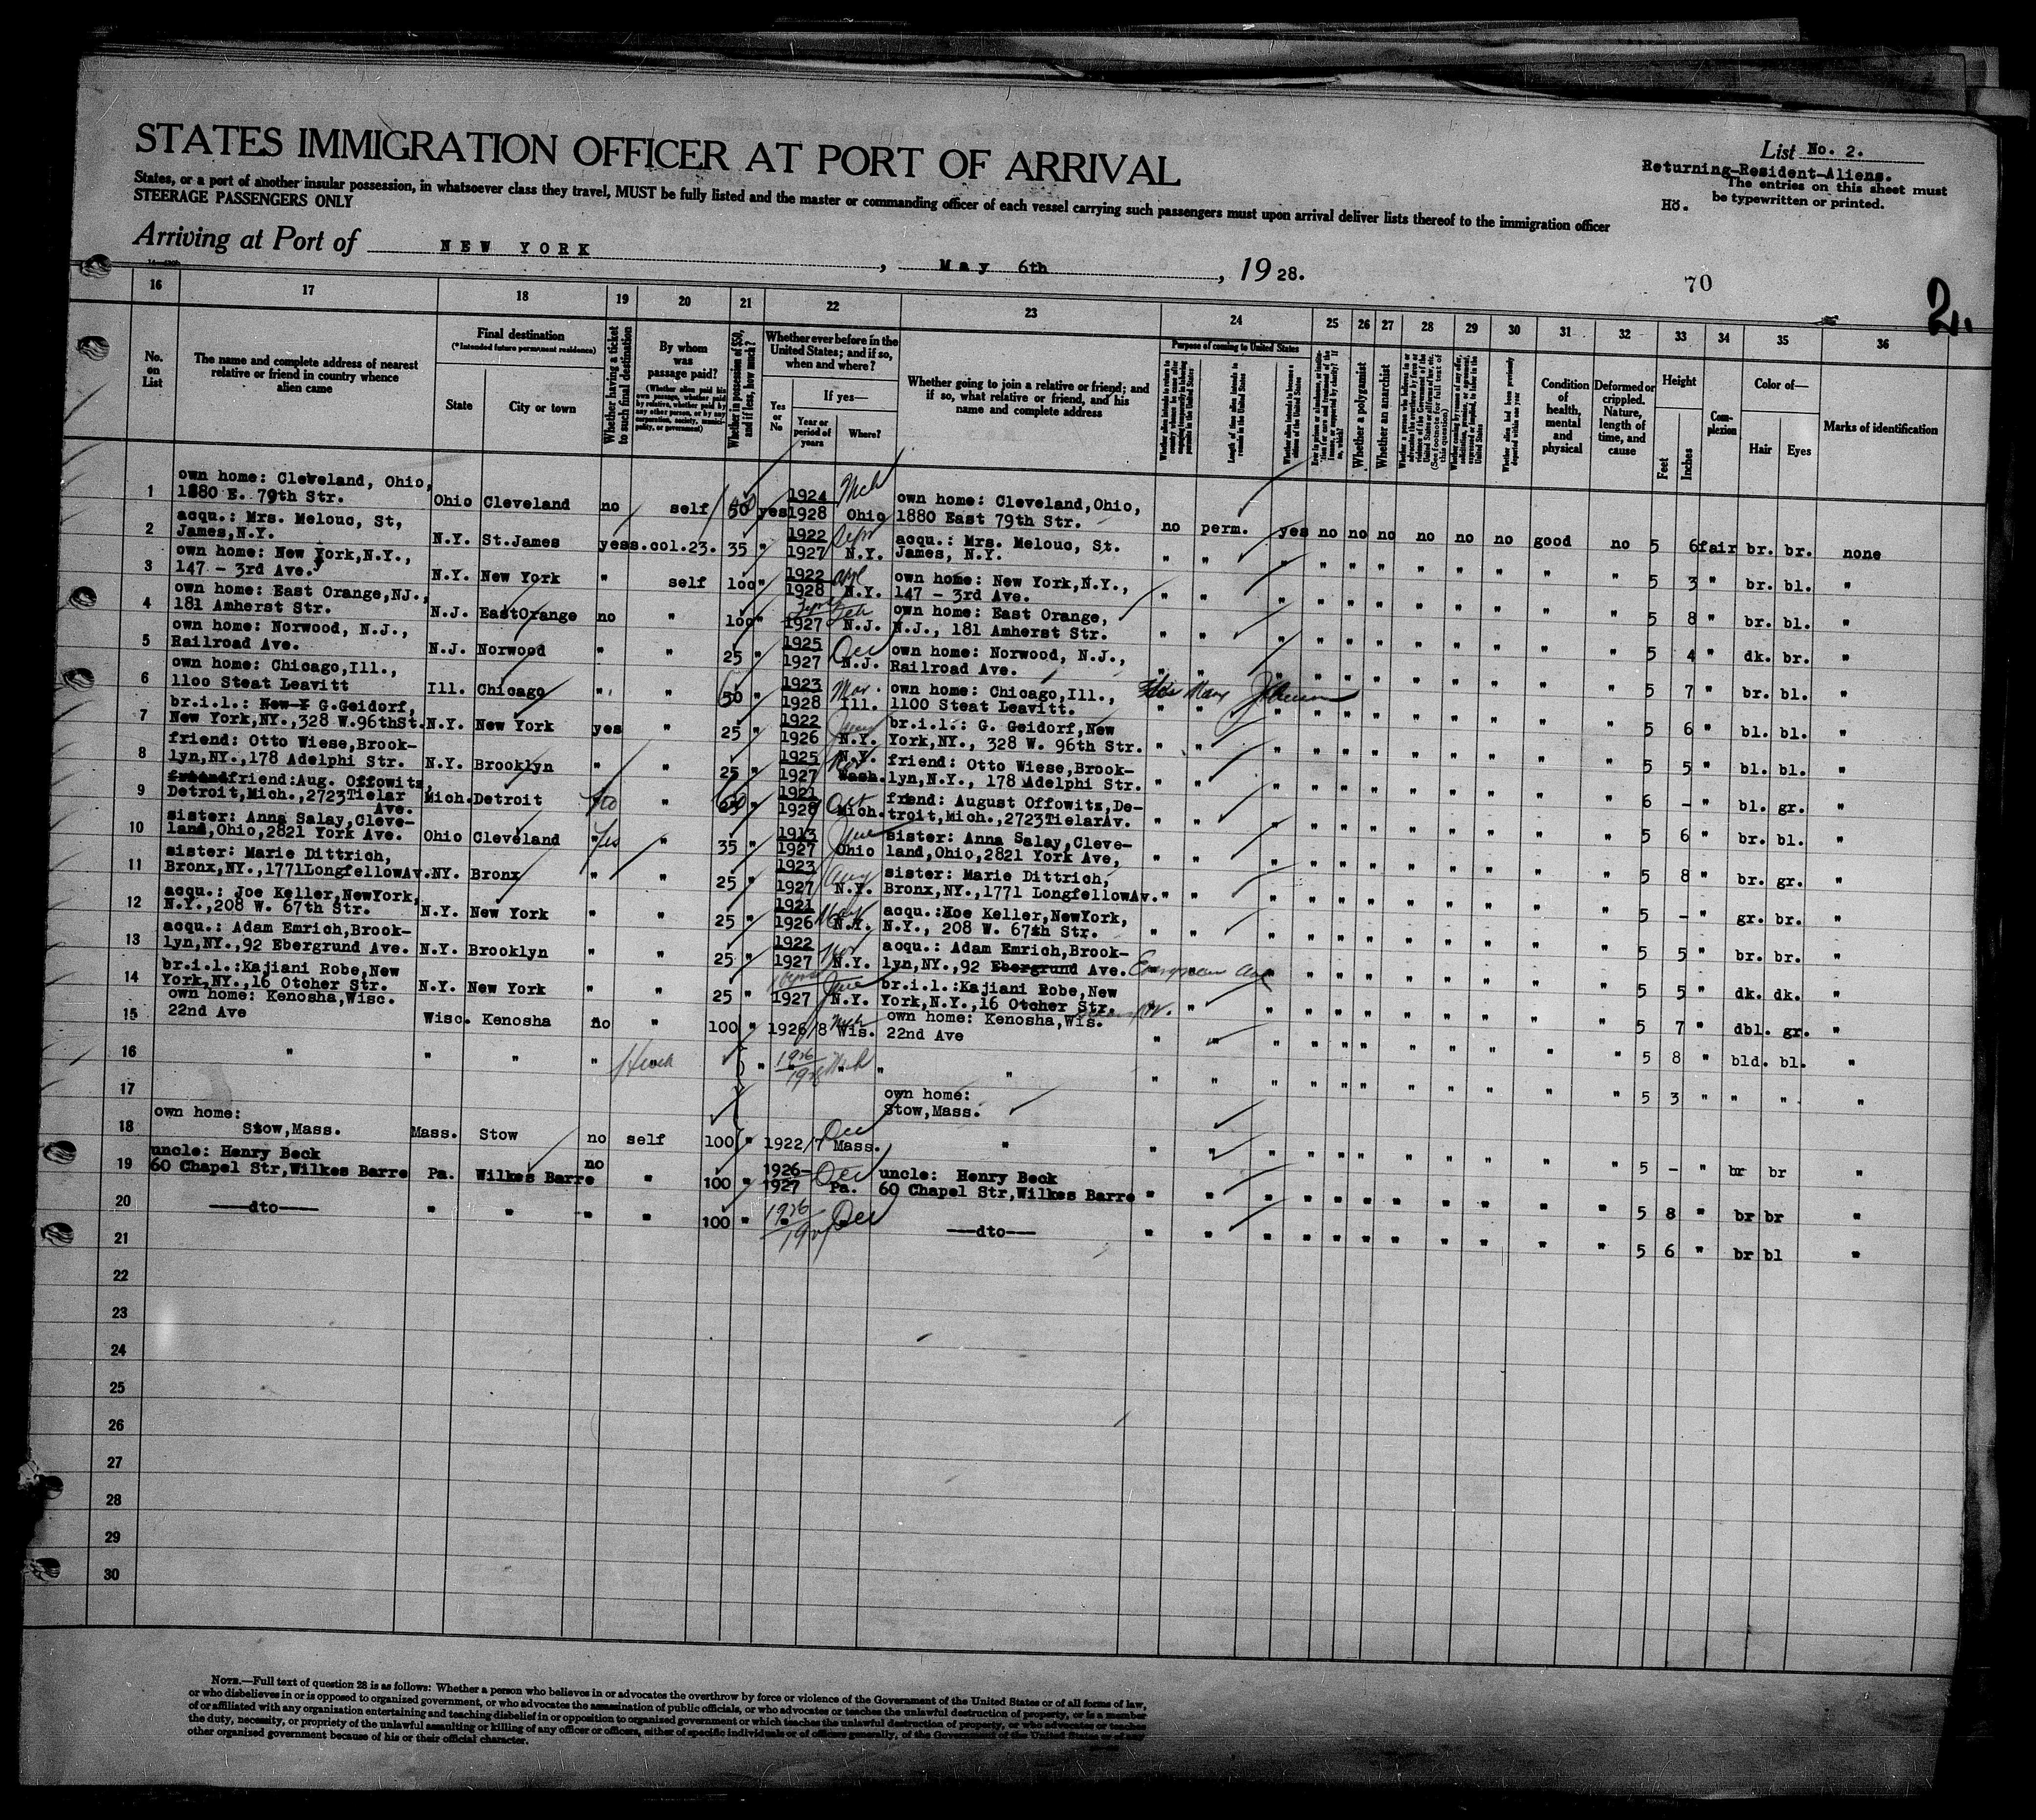 STATES IMMIGRATION OFFICER AT PORT OF ARRIVAL
List No. 2.
Returning-Resident-Aliens.
The entries on this sheet must
be typewritten or printed.
Hö.
States, or a port of another insular possession, in whatsoever class they travel, MUST be fully listed and the master or commanding officer of each vessel carrying such passengers must upon arrival deliver lists thereof to the immigration officer
STEERAGE PASSENGERS ONLY
Arriving at Port of NEW YORK, May 6th, 1928.
70
2.
16 17 18 19 20 21 22 23 24 25 26 27 28 29 30 31 32 33 34 35 36
No. on List
The name and complete address of nearest relative or friend in country whence alien came
Final destination
(*Intended future permanent residence)
State
City or town
Whether having a ticket to such final destination
By whom was passage paid?
(Whether alien paid his own passage, whether paid by relative, whether paid by any other person, or by any corporation, society, municipality, or government)
Whether in possession of $50, and if less, how much?
Whether ever before in the United States; and if so, when and where?
Yes or No
If yes—
Year or period of years
Where?
Whether going to join a relative or friend; and if so, what relative or friend, and his name and complete address
Purpose of coming to United States
Length of time alien intends to remain in the United States
Whether alien intends to become a citizen of the United States
Whether a polygamist
Whether an anarchist
(See footnote for full text of this question)
Condition of health, mental and physical
Deformed or crippled. Nature, length of time, and cause
Height
Feet
Inches
Complexion
Color of—
Hair
Eyes
Marks of identification
1 own home: Cleveland, Ohio, 1880 E. 79th Str. Ohio Cleveland no self 50 yes 1924 1928 Mch Ohio own home: Cleveland,Ohio, 1880 East 79th Str. no perm. yes no no no no no no good no 5 6 fair br. br. none
2 acqu.: Mrs. Melouc, St, James,N.Y. N.Y. St.James yes s.col.23. 35 " 1922 1927 Sept N.Y. acqu.: Mrs. Melouc, St. James, N.Y. " " " " " " " " " " " 5 3 " br. bl. "
3 own home: New York,N.Y., 147 - 3rd Ave. N.Y. New York " self 100 " 1922 1928 N.Y. own home: New York,N.Y., 147 - 3rd Ave. " " " " " " " " " " " 5 8 " br. bl. "
4 own home: East Orange,NJ., 181 Amherst Str. N.J. EastOrange no " 100 " 1927 Feb N.J. own home: East Orange, N.J., 181 Amherst Str. " " " " " " " " " " " 5 4 " dk. br. "
5 own home: Norwood, N.J., Railroad Ave. N.J. Norwood " " 25 " 1925 1927 Dec N.J. own home: Norwood, N.J., Railroad Ave. " " " " " " " " " " " 5 7 " br. bl. "
6 own home: Chicago,Ill., 1100 Steat Leavitt Ill. Chicago " " 50 " 1923 1928 Mar. Ill. own home: Chicago,Ill., 1100 Steat Leavitt. " " " " " " " " " " " 5 6 " bl. bl. "
7 br.i.l.: New Y G.Geidorf, New York,NY.,328 W.96thSt. N.Y. New York yes " 25 " 1922 1926 N.Y. br.i.l.: G. Geidorf,New York,NY., 328 W. 96th Str. " " " " " " " " " " " 5 5 " bl. bl. "
8 friend: Otto Wiese,Brook- lyn,NY.,178 Adelphi Str. N.Y. Brooklyn " " 25 " 1925 1927 N.Y. Wash. friend: Otto Wiese,Brook- lyn,N.Y., 178 Adelphi Str. " " " " " " " " " " " 6 - " bl. gr. "
9 friend friend:Aug. Offowitz, Detroit,Mich.,2723Tielar Ave. Mich. Detroit " 60 " 1921 1928 Oct Mich. friend: August Offowitz,De- troit,Mich.,2723TielarAv. " " " " " " " " " " " 5 6 " br. bl. "
10 sister: Anna Salay,Cleve- land,Ohio,2821 York Ave. Ohio Cleveland Yes " 35 " 1913 1927 June Ohio sister: Anna Salay,Cleve- land,Ohio,2821 York Ave, " " " " " " " " " " " 5 8 " br. gr. "
11 sister: Marie Dittrich, Bronx,NY.,1771LongfellowAv. NY. Bronx " " 25 " 1923 1927 Aug N.Y. sister: Marie Dittrich, Bronx,NY.,1771 LongfellowAv. " " " " " " " " " " " 5 - " gr. br. "
12 acqu.: Joe Keller,NewYork, N.Y.,208 W. 67th Str. N.Y. New York " " 25 " 1921 1926 N.Y. acqu.:Hoe Keller,NewYork, N.Y., 208 W. 67th Str. " " " " " " " " " " " 5 5 " br. br. "
13 acqu.: Adam Emrich,Brook- lyn,NY.,92 Ebergrund Ave. N.Y. Brooklyn " " 25 " 1922 1927 Nov N.Y. acqu.: Adam Emrich,Brook- lyn,NY.,92 Ebergrund Ave. Evergreen Ave " " " " " " " " " 5 5 " dk. dk. "
14 br.i.l.:Kajiani Robe,New York,NY.,16 Otcher Str. N.Y. New York " " 25 " 1927 June N.Y. br.i.l.:Kajiani Robe,New York,N.Y.,16 Otcher Str. " " " " " " " " " " " 5 7 " dbl. gr. "
15 own home: Kenosha,Wisc. 22nd Ave Wisc. Kenosha no " 100 " 1926/8 Mch Wis. own home: Kenosha,Wis. 22nd Ave " " " " " " " " " " " 5 8 " bld. bl. "
16 " " " " " 1926 1928 Mch " " " " " " " " " " " " " 5 3 " " " "
17 own home: Stow,Mass.
18 own home: Stow,Mass. Mass. Stow no self 100 " 1922/7 Dec Mass. " " " " " " " " " " " " 5 - " br br "
19 uncle: Henry Beck 60 Chapel Str,Wilkes Barre Pa. Wilkes Barre no " 100 " 1926- 1927 Dec Pa. uncle: Henry Beck 60 Chapel Str,Wilkes Barre " " " " " " " " " " " 5 8 " br br "
20 ----dto---- " " " " 100 " 1926 1927 Dec ---dto--- " " " " " " " " " " " 5 6 " br bl "
21
22
23
24
25
26
27
28
29
30
NOTE.—Full text of question 28 is as follows: Whether a person who believes in or advocates the overthrow by force or violence of the Government of the United States or of all forms of law,
or who disbelieves in or is opposed to organized government, or who advocates the assassination of public officials, or who advocates or teaches the unlawful destruction of property, or is a member
of or affiliated with any organization entertaining and teaching disbelief in or opposition to organized government or which teaches the unlawful destruction of property, or who advocates or teaches
the duty, necessity, or propriety of the unlawful assaulting or killing of any officer or officers, either of specific individuals or of officers generally, of the Government of the United States or of any
other organized government because of his or their official character.